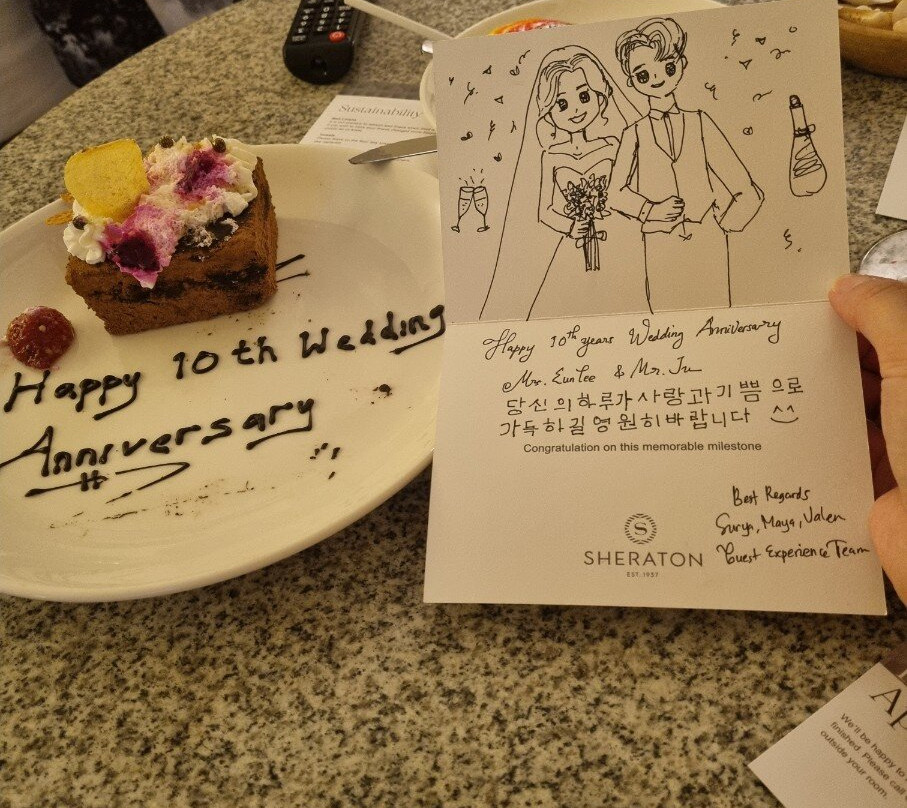 Sustainability
Happy 10th Wedding
Anniversary
Happy 10th years Wedding Anniversary
@Mrs. Eun Lee & Mr. Ju
당신의 하루가 사랑과 기쁨으로
가득하길 영원히 바랍니다 ^^
Congratulation on this memorable milestone
Best Regards
Surya, Maya, Valen
Guest Experience Team
S
SHERATON
EST. 1937
We'll be happy to
finished. Please call
outside your room.